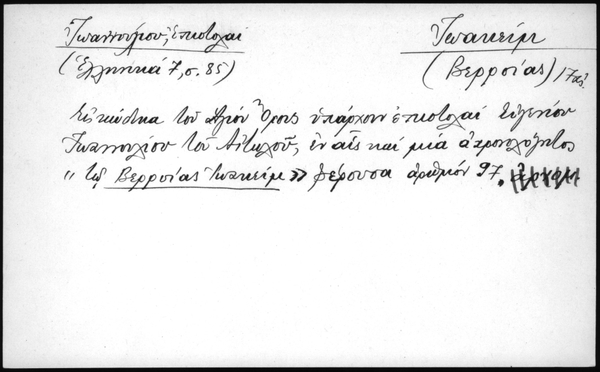 Ἰωαννουλίου, ἐπιστολαί
(Ἑλληνικά 7, σ. 85)
Ἰωακείμ
(Βερροίας) 17 αἰ.
Εἰς κώδικα τοῦ Ἁγίου Ὄρους ὑπάρχουν ἐπιστολαί Εὐγενίου
Ἰωαννουλίου τοῦ Αἰτωλοῦ, ἐν αἷς καί μία ἀχρονολόγητος
"τῷ Βερροίας Ἰωακείμ" φέρουσα ἀριθμόν 97.